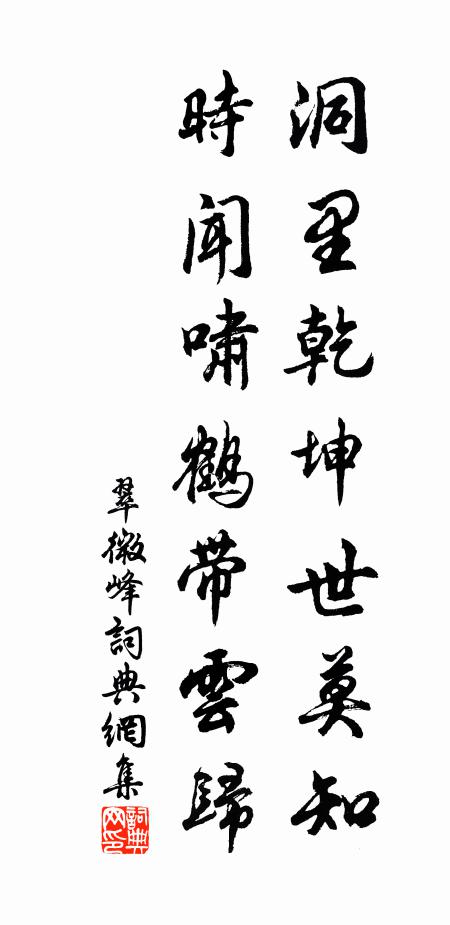 洞里乾坤世莫知
時闻嘯鶴带雲歸
翠微峰詞典網集
詞典网印